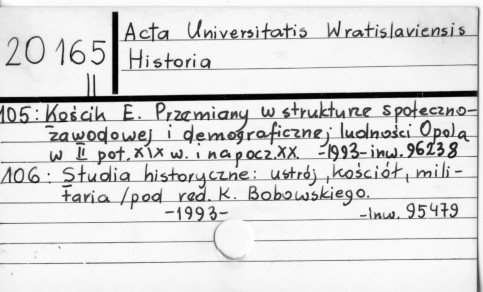 20165
II
Acta Universitatis Wratislaviensis
Historia
105: Kościk E. Przemiany w strukturze społeczno-
zawodowej i demograficznej ludności Opola
w II poł. XIX w. i na pocz. XX. -1993- inw. 96238
106: Studia historyczne: ustrój, kościół, mili-
taria / pod red. K. Bobowskiego.
-1993- -Inw. 95479